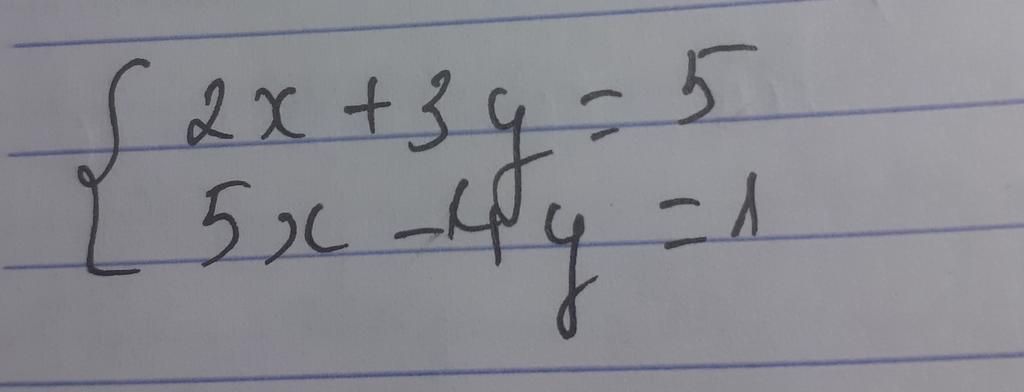 2x + 3y = 5
5x - 4y = 1